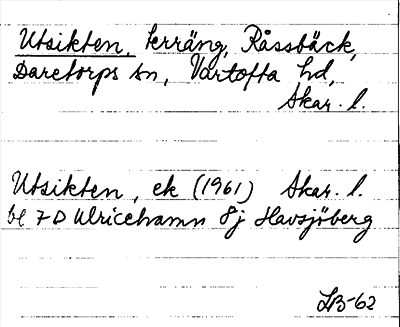 Utsikten, terräng, Råssbäck,
Daretorps sn, Vartofta hd,
Skar. l.
Utsikten, ek (1961) Skar. l.
bl 7D Ulricehamn 8j Havsjöberg
LB-62